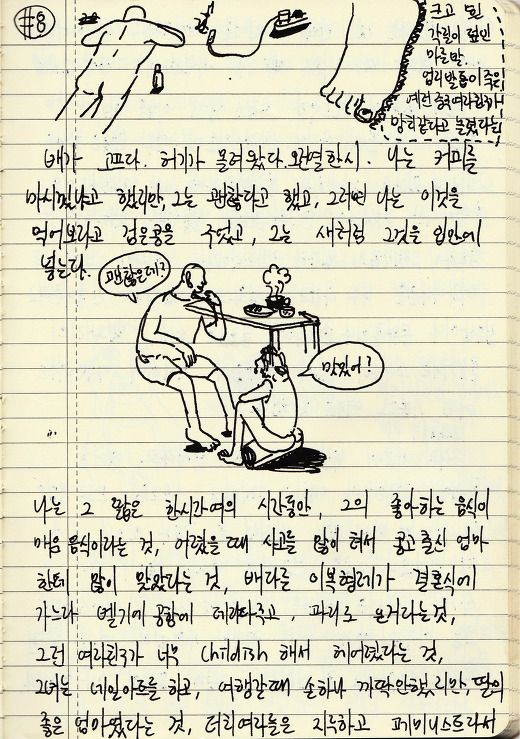 #8
크고 흰
각질이 덮인
마른발.
엄지발톱이 죽은
예전 중국여자친구가
망치같다고 놀렸다던
배가 고프다. 허기가 몰려왔다. 오전열한시. 나는 커피를
마시겠냐고 했지만, 그는 괜찮다고 했고, 그러면 나는 이것을
먹어보라고 검은콩을 주었고, 그는 새처럼 그것을 입안에
넣는다.
괜찮은데?
맛있어?
나는 그 짧은 한시간여의 시간동안, 그의 좋아하는 음식이
매운 음식이라는 것, 어렸을때 사고를 많이 쳐서 콩고 출신 엄마
한테 많이 맞았다는 것, 배다른 이복형제가 결혼식에
가느라 벨기에 공항에 데려다주고, 파리로 온거라는것,
그런 여자친구가 너무 childish 해서 헤어졌다는 것,
그녀는 네일아트를 하고, 여행갈때 손하나 까딱안했지만, 딸의
좋은 엄마였다는 것, 파리여자들은 지독하고 페미니스트라서